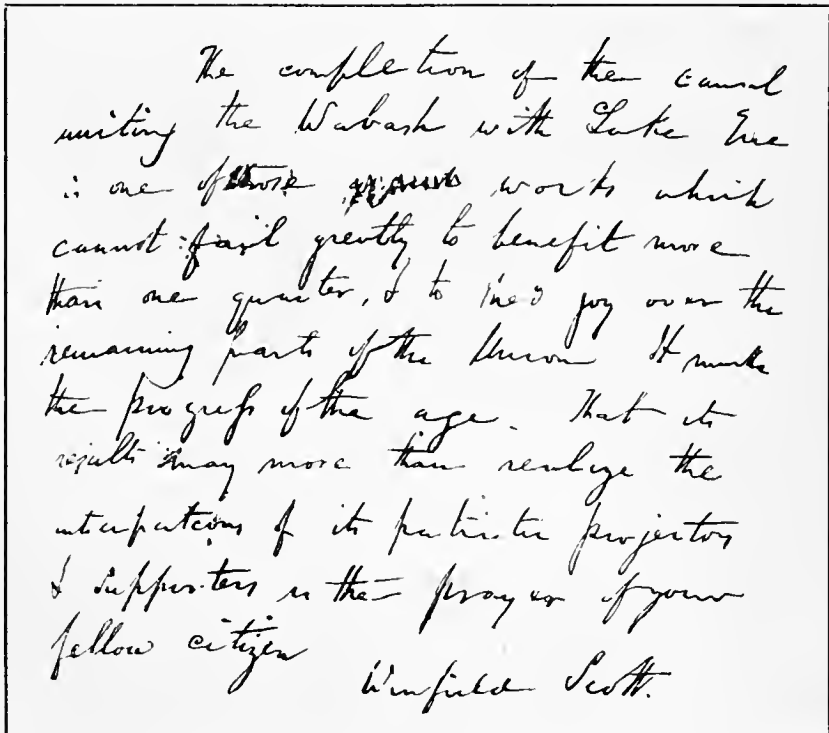 The completion of the canal
uniting the Wabash with Lake Erie
is one of those works which
cannot fail greatly to benefit more
than one quarter, & to shed joy over the
remaining parts of the Union It marks
the progress of the age. That its
results may more than realize the
anticipations of its patriotic projectors
& supporters is the prayer of your
fellow citizen
Winfield Scott.